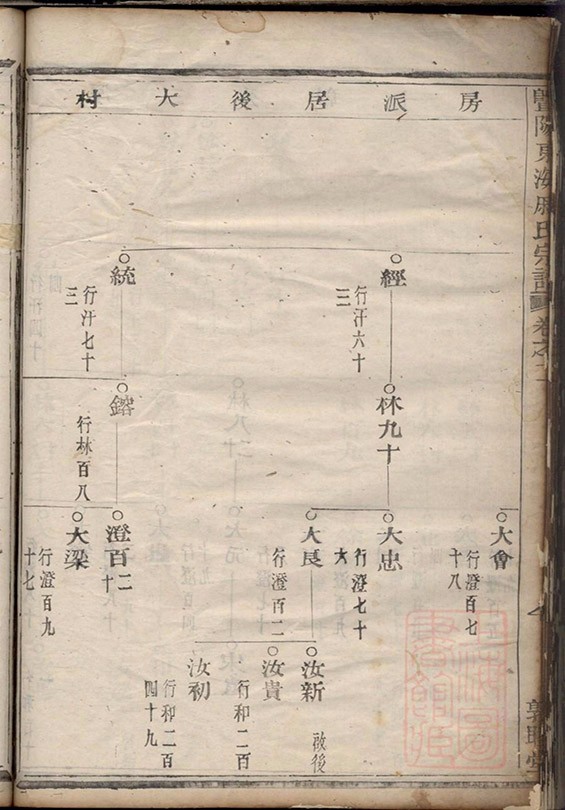 暨陽東海戚氏宗譜 卷之二
房派居後大村
大會
行澄百七
十八
經
行汗六十
三
林九十
大忠
行澄七十
大
大良
行澄百二
汝新
啟後
汝貴
行和二百
汝初
行和二百
四十九
統
行汗七十
三
鎔
行林百八
澄百二
十
大梁
行澄百九
十七